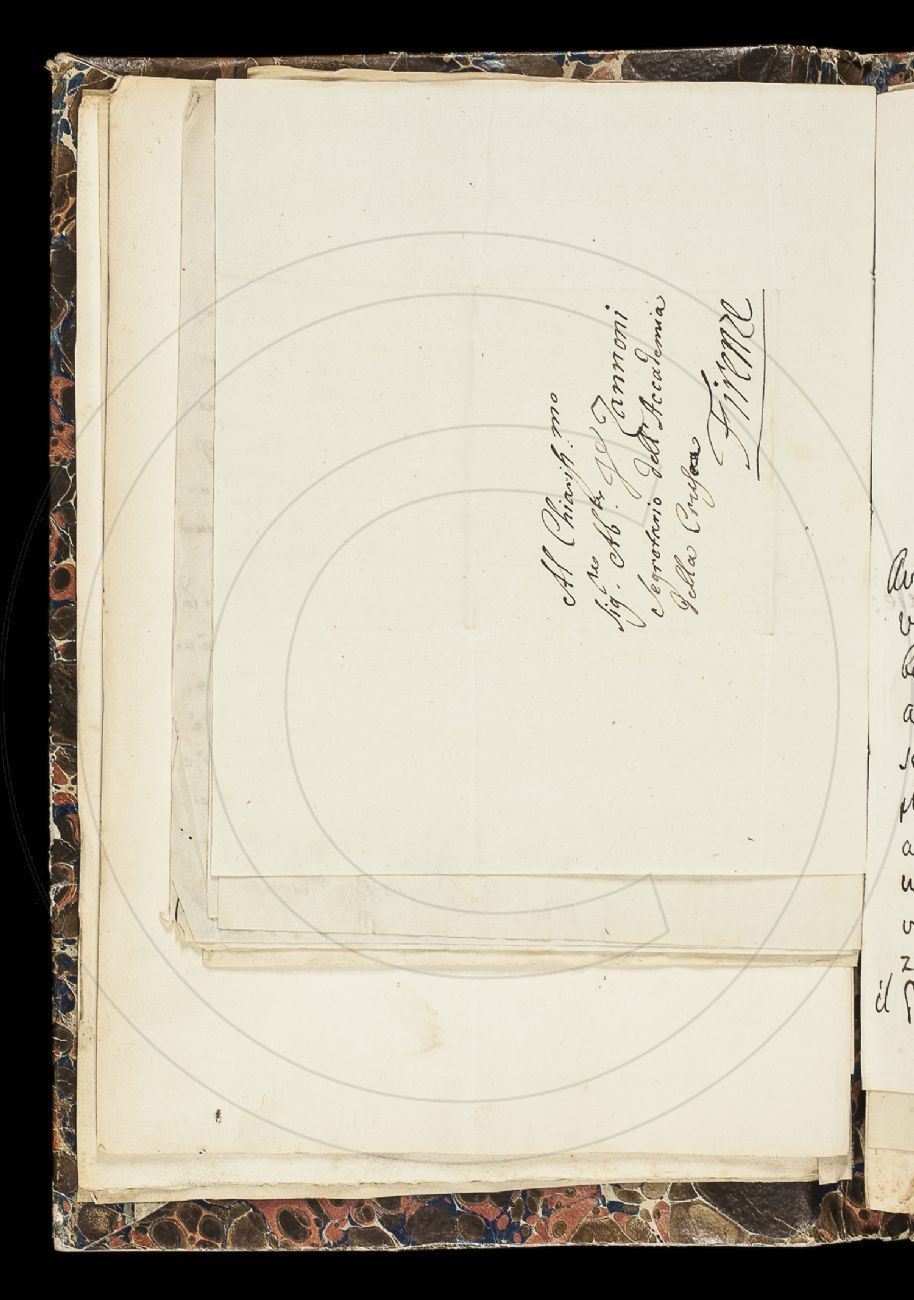 Al Chiariss:mo
Sig.re Ab.te Zannoni
Segretario dell'Accademia
della Crusca
Firenze